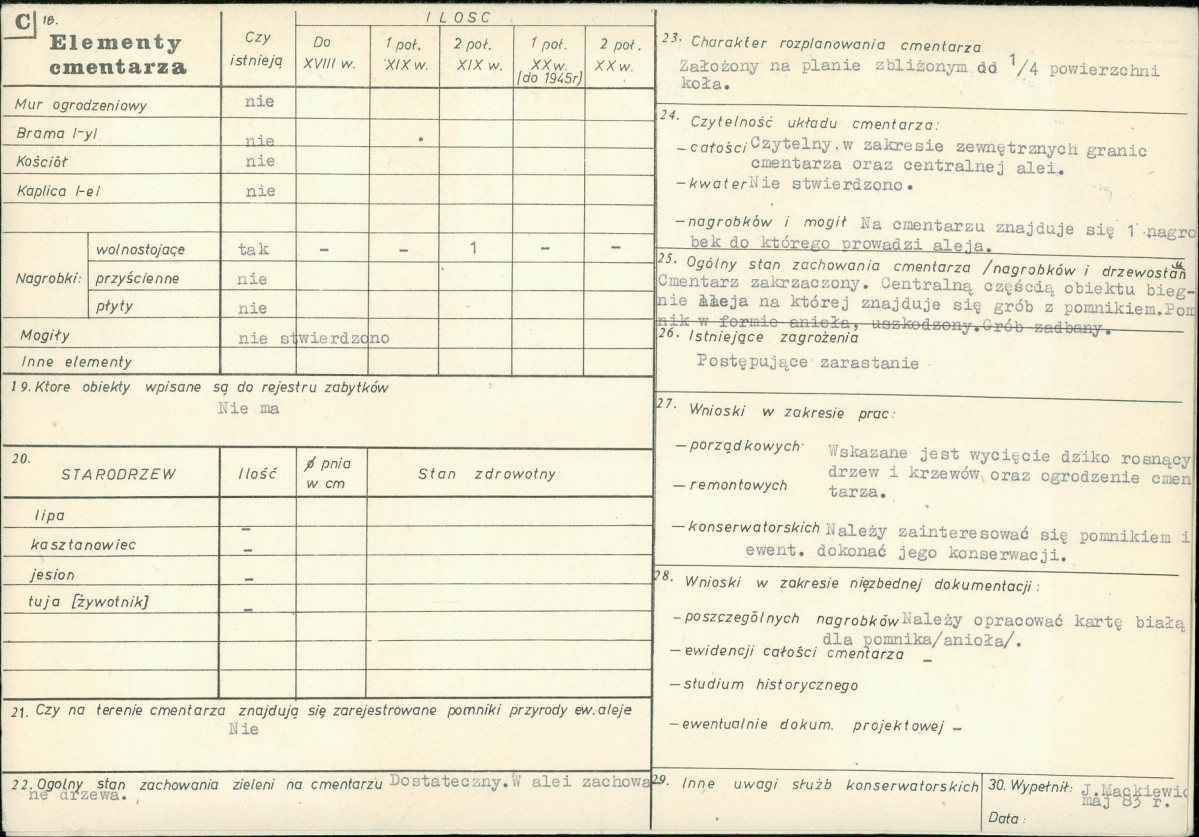 C
18.
Elementy
cmentarza
Czy
istnieją
ILOSC
Do
XVIII w.
1 poł.
XIX w.
2 poł.
XIX w.
1 poł.
XX w.
(do 1945r)
2 poł.
XX w.
Mur ogrodzeniowy nie
Brama I-yI nie
Kościół nie
Kaplica I-eI nie
Nagrobki:
wolnostojące tak - - 1 - -
przyścienne nie
płyty nie
Mogiły nie stwierdzono
Inne elementy
19. Ktore obiekty wpisane są do rejestru zabytków
Nie ma
20.
STARODRZEW
Ilość
ϕ pnia
w cm
Stan zdrowotny
lipa -
kasztanowiec -
jesion -
tuja [żywotnik] -
21. Czy na terenie cmentarza znajdują się zarejestrowane pomniki przyrody ew. aleje
Nie
22. Ogolny stan zachowania zieleni na cmentarzu Dostateczny.W alei zachowa-
ne drzewa.
23. Charakter rozplanowania cmentarza
Założony na planie zbliżonym do 1/4 powierzchni
koła.
24. Czytelność układu cmentarza:
- całości Czytelny w zakresie zewnętrznych granic
cmentarza oraz centralnej alei.
- kwater Nie stwierdzono.
- nagrobków i mogił Na cmentarzu znajduje się 1 nagro
bek do którego prowadzi aleja.
25. Ogólny stan zachowania cmentarza /nagrobków i drzewostan
Cmentarz zakrzaczony. Centralną częścią obiektu bieg-
nie aleja na której znajduje się grób z pomnikiem.Pom
nik w formie anioła, uszkodzony.Grób zadbany.
26. Istniejące zagrożenia
Postępujące zarastanie
27. Wnioski w zakresie prac:
- porządkowych Wskazane jest wycięcie dziko rosnący
drzew i krzewów oraz ogrodzenie cmen
- remontowych
tarza.
- konserwatorskich Należy zainteresować się pomnikiem i
ewent. dokonać jego konserwacji.
28. Wnioski w zakresie niezbednej dokumentacji:
- poszczególnych nagrobków Należy opracować kartę białą
dla pomnika/anioła/.
- ewidencji całości cmentarza -
- studium historycznego
- ewentualnie dokum. projektowej -
29. Inne uwagi służb konserwatorskich
30. Wypełnił: J.Mackiewic
maj 83 r.
Data: